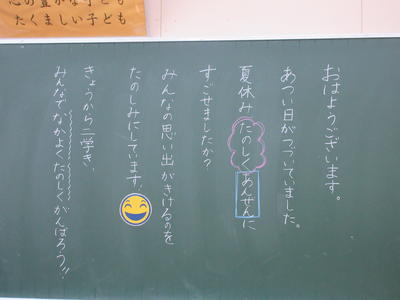 心の豊かな子ども
たくましい子ども
おはようございます。
あつい日がつづいていました。
夏休み たのしく あんぜんに
すごせましたか？
みんなの思い出がきけるのを
たのしみにしています。
きょうから二学き、
みんなでなかよくたのしくがんばろう!!